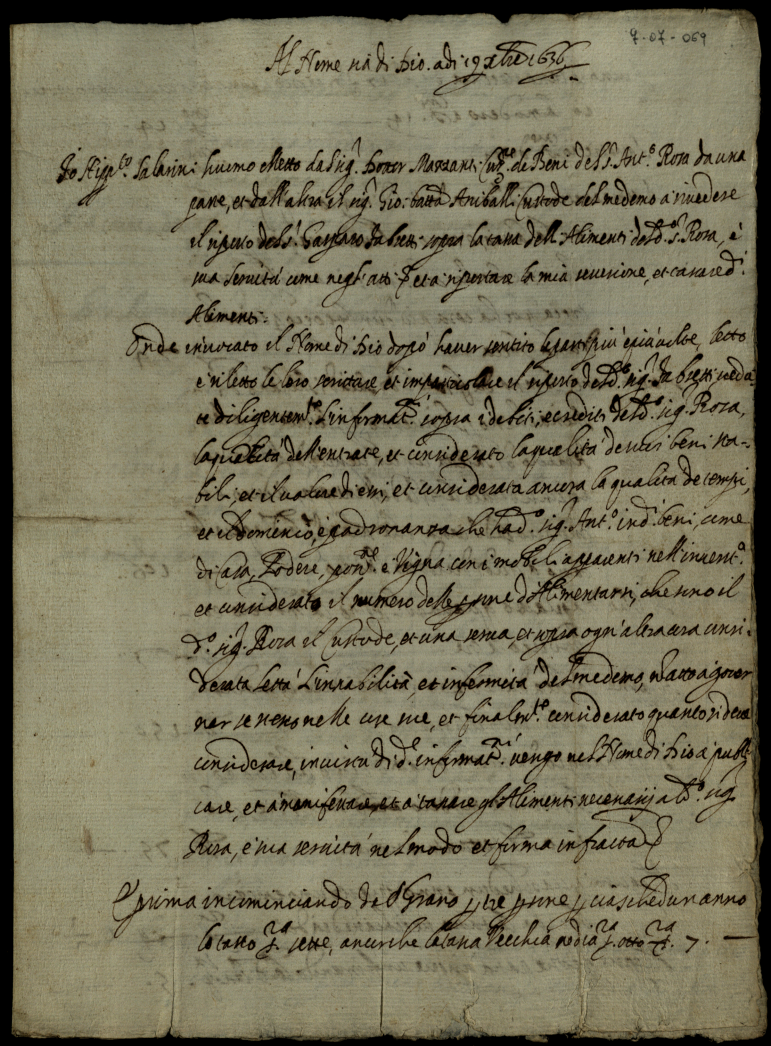 7-07-069
Al Nome sià di Dio. adi 19 xbre 1636
Io Hipp.to Salarini huomo eletto da sig.r Marzanti de Beni del S.r Ant.o Rosa da una
parte, et dall'altra il sig.r Gio: batta Aniballi Custode del medemo a rivedere
il riparo del S.r Gasparo sopra la tassa delli Alimenti del d.o S.r Rosa, è
sua servità come negl'atti et a riportare la mia et tassare d.i
Alimenti.
Onde invocato il Nome di Dio dopò haver sentito le parti più è più volte, letto
e riletto le loro scritture, et il del d.o sig.r veduta
te diligentem.te l'informat.ni sopra i debiti, e crediti del d.o sig.r Rosa,
la qualità dell'entrate, et considerato la qualità de suoi beni sta-
bili, et il valore di essi, et considerata ancora la qualità de tempi,
et il Dominio, è padronanza che ha d.o sig.r Ant.o in d.i beni, come
di Casa, Podere, è Vigna con i mobili apparenti nell'invent.o
et considerato il numero delle persone d'Alimentarsi, che sono il
d.o sig.r Rosa il Custode, et una serva, et sopra ogn'altra cosa consi-
derata l'età l'instabilità, et infermità del medemo, a gover
nar se stesso nelle cose sue, et finalm.te considerato quanto si deve
considerare, in vista di d.e informat.ni vengo nel Nome di Dio a publi
care, et à manifestare, et à tassare gl'Alimenti necessarij al d.o sig.r
Rosa, è sua servità nel modo et forma infracta
E prima incominciando del Grano p tre persone p ciaschedun anno
lo tasso sette, ancorche la tassa Vecchia otto 7. —